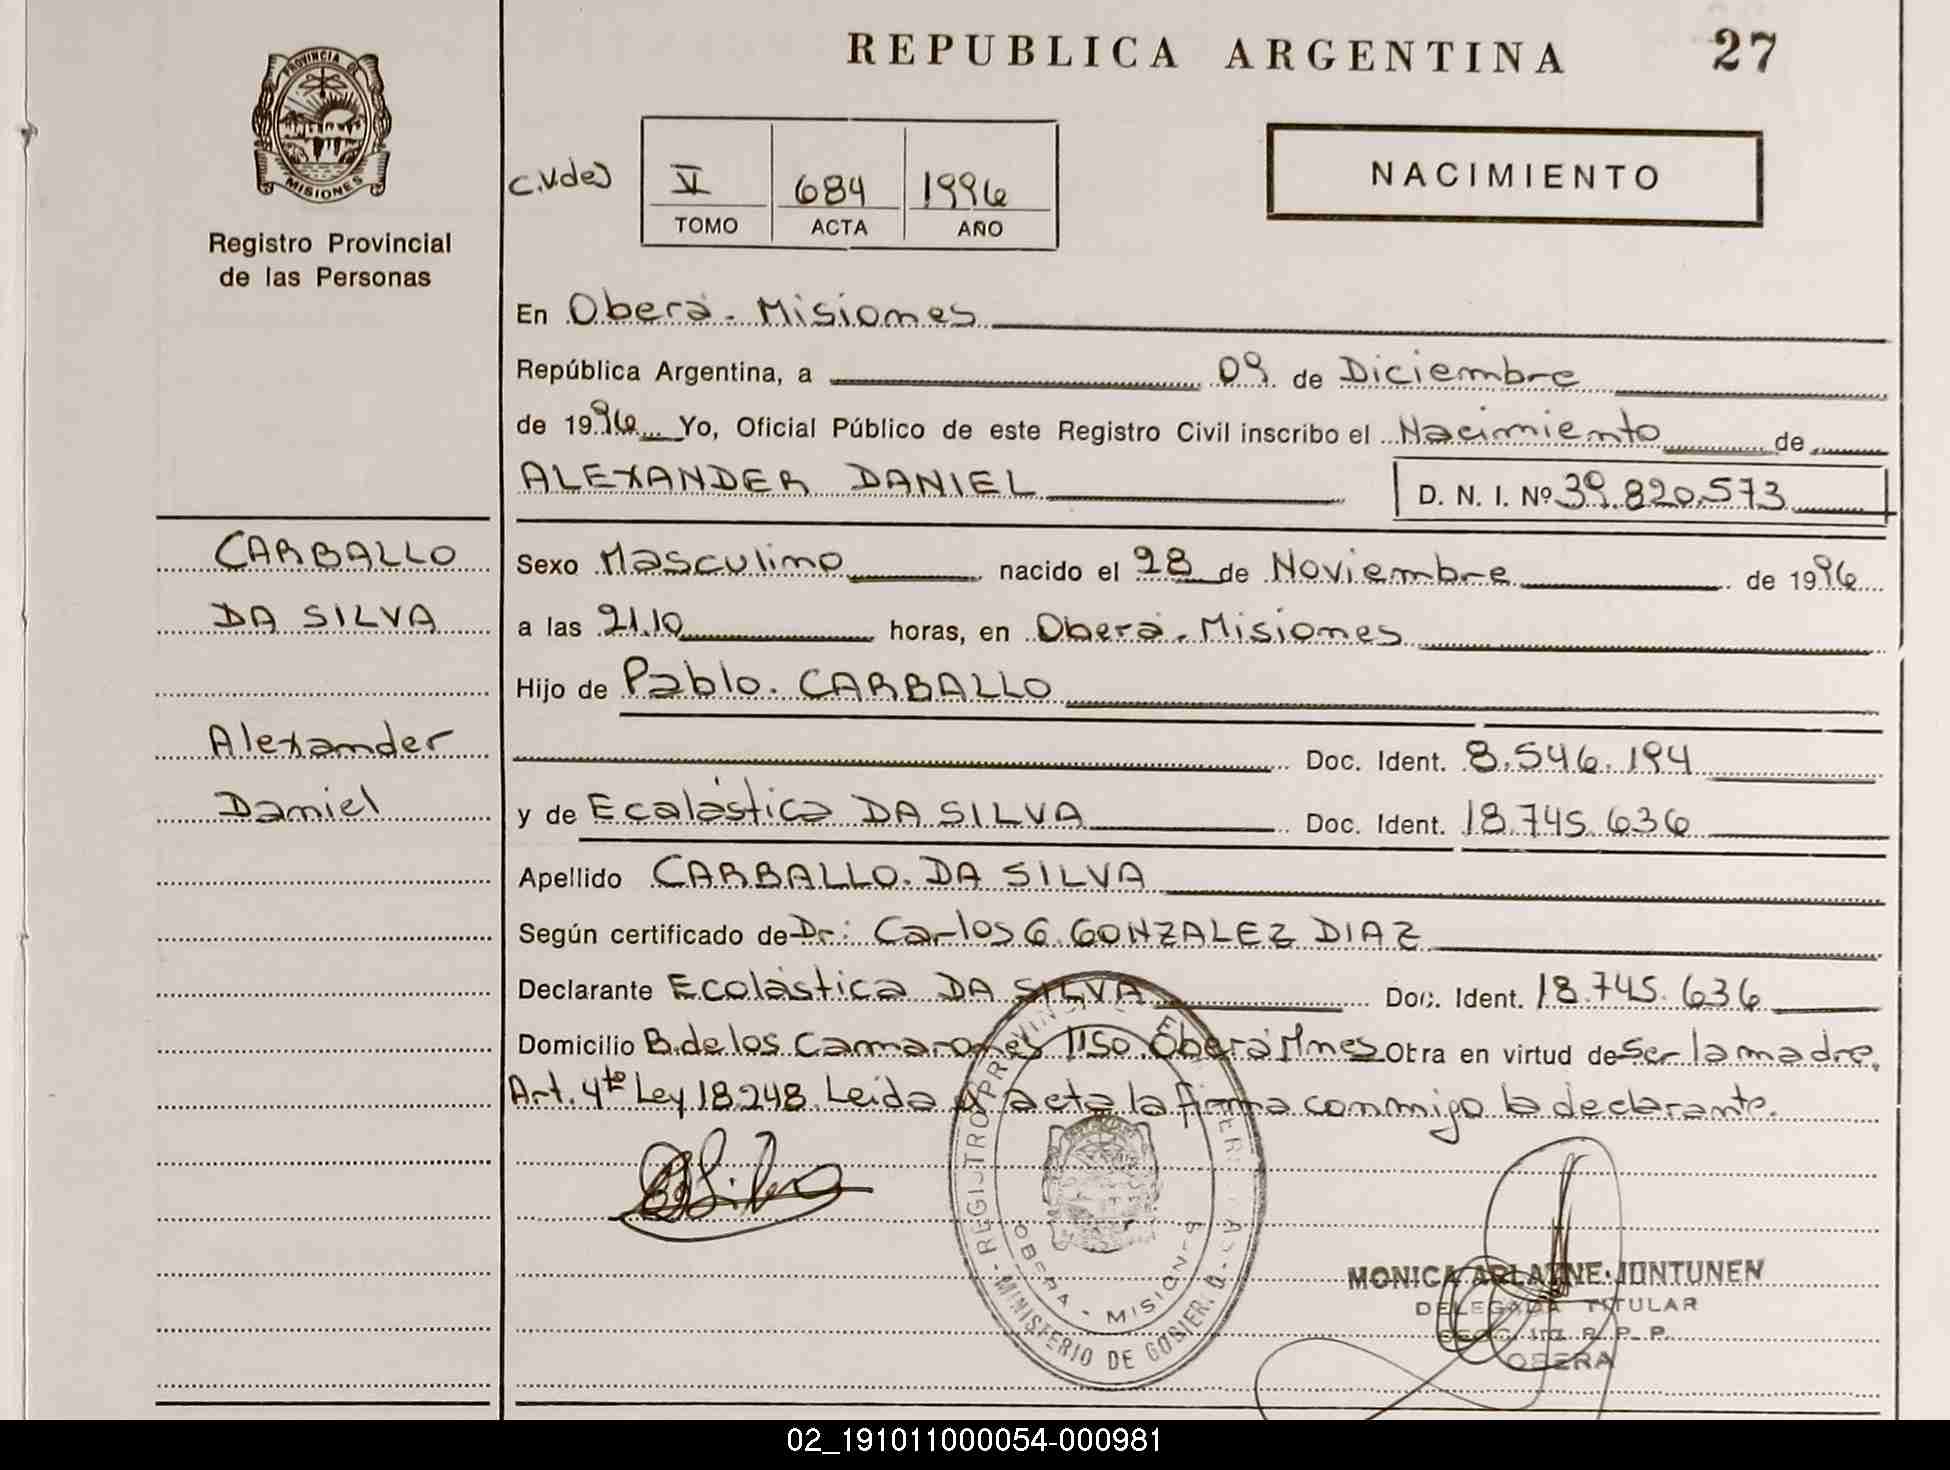 REPUBLICA ARGENTINA
27
PROVINCIA DE
MISIONES
Registro Provincial
de las Personas
C.Vdes
VI 684 1996
TOMO ACTA AÑO
NACIMIENTO
En Oberá - Misiones
República Argentina, a 09 de Diciembre
de 1996 Yo, Oficial Público de este Registro Civil inscribo el Nacimiento de
ALEXANDER DANIEL D. N. I. Nº 39.820.573
CARBALLO
DA SILVA
Alexander
Daniel
Sexo Masculino nacido el 28 de Noviembre de 1996
a las 21.10 horas, en Oberá - Misiones
Hijo de Pablo. CARBALLO
Doc. Ident. 8.546.194
y de Ecolástica DA SILVA Doc. Ident. 18.745.636
Apellido CARBALLO. DA SILVA
Según certificado de Dr: Carlos G. GONZALEZ DIAZ
Declarante Ecolástica DA SILVA Doc. Ident. 18.745.636
Domicilio B. de los Camarones 1150. Oberá Mnes Obra en virtud de ser la madre.
Art. 4to Ley 18.248. Leida el acta la firma conmigo la declarante.
REGISTRO PROVINCIAL DE LAS
OBERA - MISIONES
MINISTERIO DE GOBIER
MONICA ARLAINE JONTUNEN
DELEGADA TITULAR
R. P. P.
OBERA
02_191011000054-000981